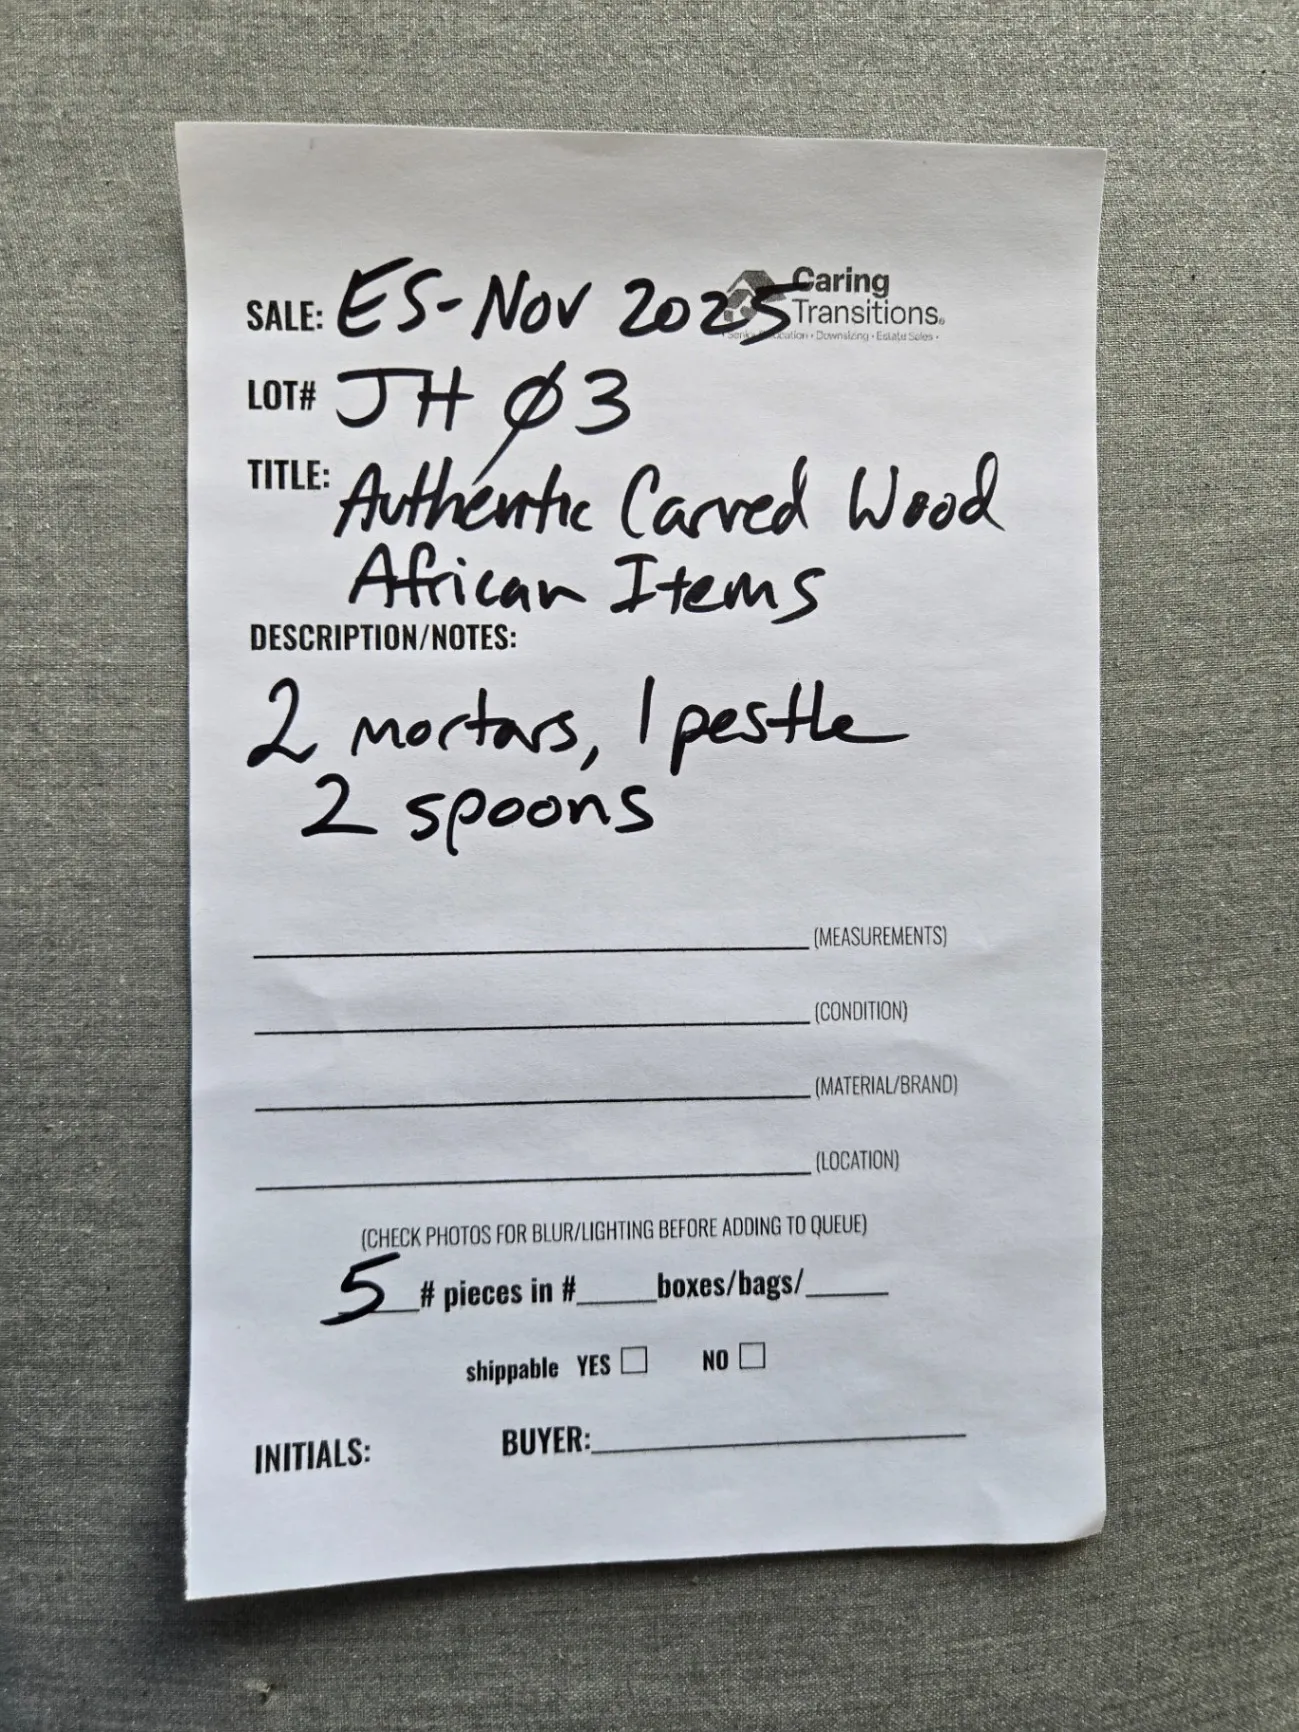 Caring
SALE: ES-Nov 2025 Transitions®
Downsizing • Estate Sales •
LOT# JH Ø3
TITLE: Authentic Carved Wood
African Items
DESCRIPTION/NOTES:
2 mortars, 1 pestle
2 spoons
(MEASUREMENTS)
(CONDITION)
(MATERIAL/BRAND)
(LOCATION)
(CHECK PHOTOS FOR BLUR/LIGHTING BEFORE ADDING TO QUEUE)
5 # pieces in #____boxes/bags/____
shippable YES ☐ NO ☐
INITIALS: BUYER:____